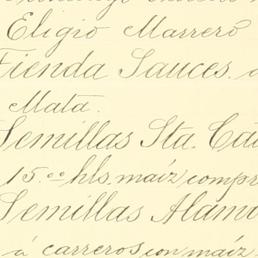 Eligio Marrero
Tienda Sauces.
Mata.
Semillas Sta. Cat
15.00 hls. maíz compr
Semillas Alam
á carreros con maíz